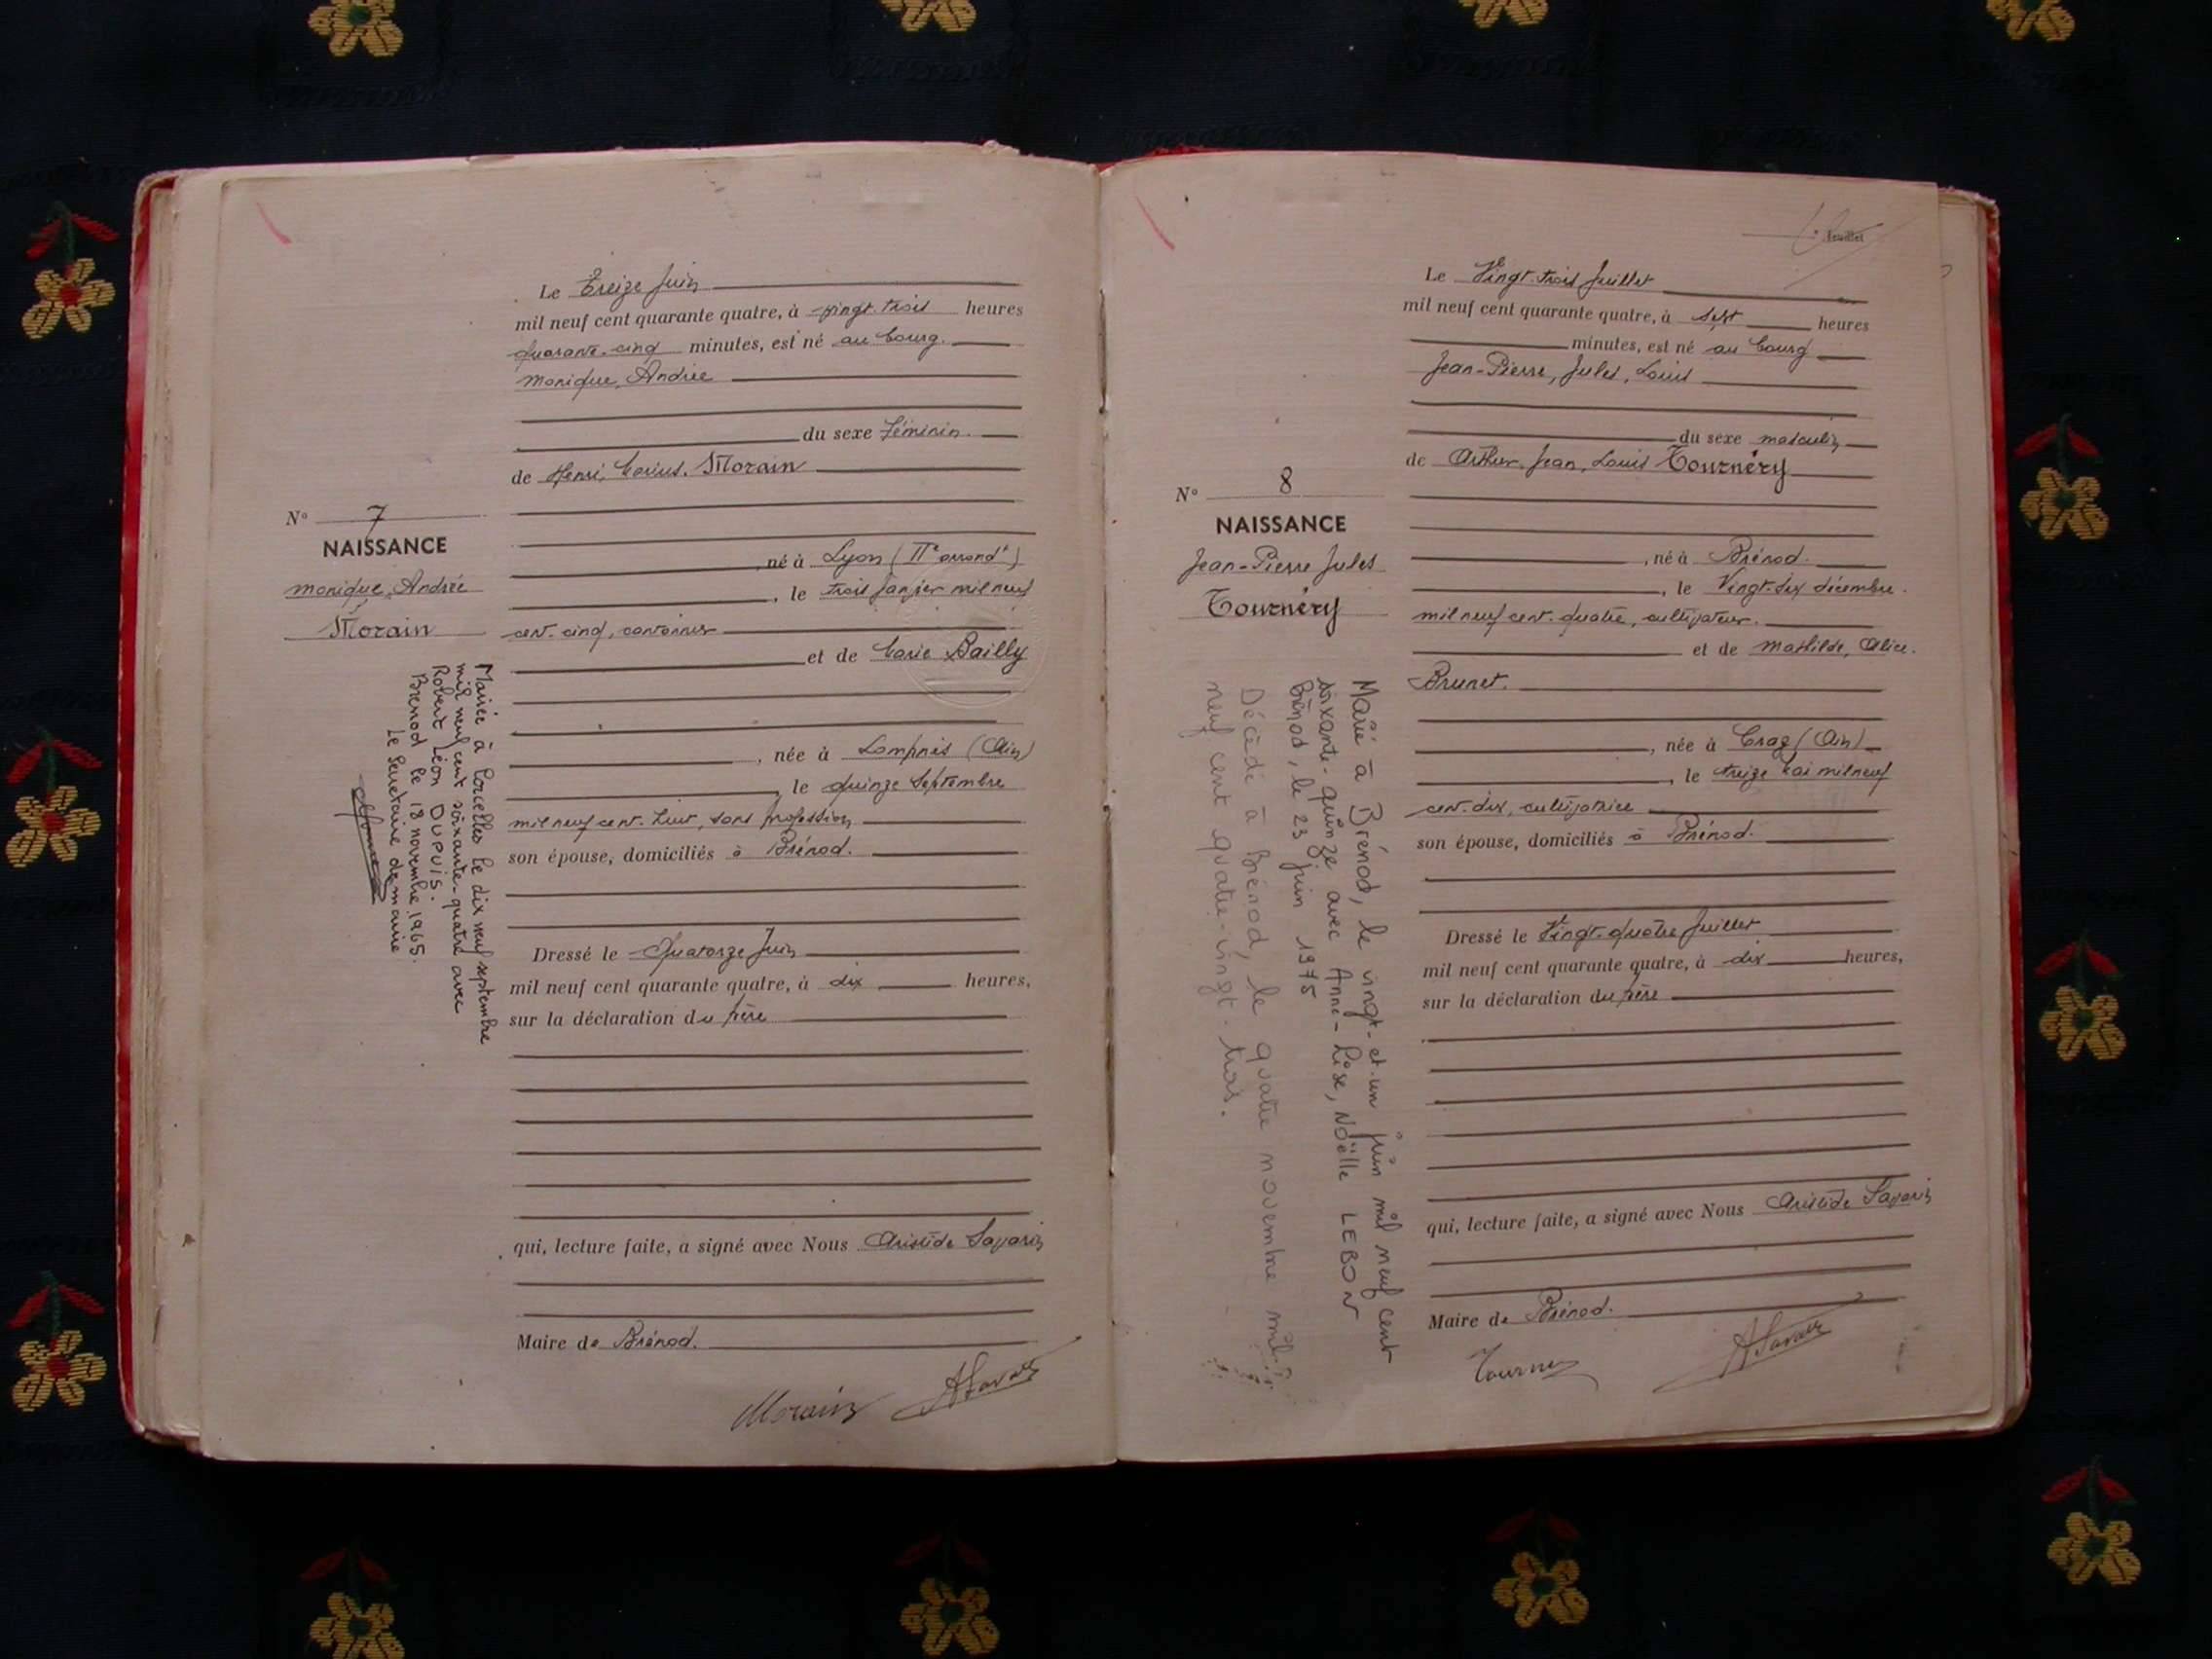 Le Treize Juin
mil neuf cent quarante quatre, à vingt-trois heures
quarante-cinq minutes, est né au bourg.
Monique, Andrée
du sexe féminin.
de Henri, Marius. Morain
N° 7
NAISSANCE
Monique, Andrée
Morain
né à Lyon (IIe arrondt)
, le trois janvier mil neuf
cent-cinq, cantonnier
et de Marie Bailly
, née à Lompnis (Ain)
, le quinze Septembre
mil neuf cent-huit, sans profession
son épouse, domiciliés à Brénod.
Dressé le Quatorze Juin
mil neuf cent quarante quatre, à dix heures,
sur la déclaration du père
qui, lecture faite, a signé avec Nous Aristide Savarin
Maire de Brénod.
Morain
ASavarin
Mariée à Corcelles le dix neuf septembre
mil neuf cent soixante-quatre avec
Robert Léon DUPUIS.
Brenod le 18 novembre 1965.
Le Secrétaire de mairie
feuillet
Le Vingt-trois Juillet
mil neuf cent quarante quatre, à sept heures
minutes, est né au bourg
Jean-Pierre, Jules, Louis
du sexe masculin
de Arthur, Jean, Louis Tournéry
N° 8
NAISSANCE
Jean-Pierre Jules
Tournéry
, né à Brénod.
, le Vingt-six décembre
mil neuf cent-quatre, cultivateur.
et de Mathilde, Alice.
Brunet.
, née à Craz (Ain)
, le treize Mai mil neuf
cent-dix, cultivatrice
son épouse, domiciliés à Brénod.
Dressé le Vingt-quatre Juillet
mil neuf cent quarante quatre, à dix heures,
sur la déclaration du père
qui, lecture faite, a signé avec Nous Aristide Savarin
Maire de Brénod.
Tournery
ASavarin
Marié à Brénod, le vingt-et-un juin mil neuf cent
soixante-quinze avec Anne-Lise, Noëlle LEBON
Brénod, le 23 juin 1975
Décédé à Brénod, le quatre novembre mil
neuf cent quatre-vingt-trois.